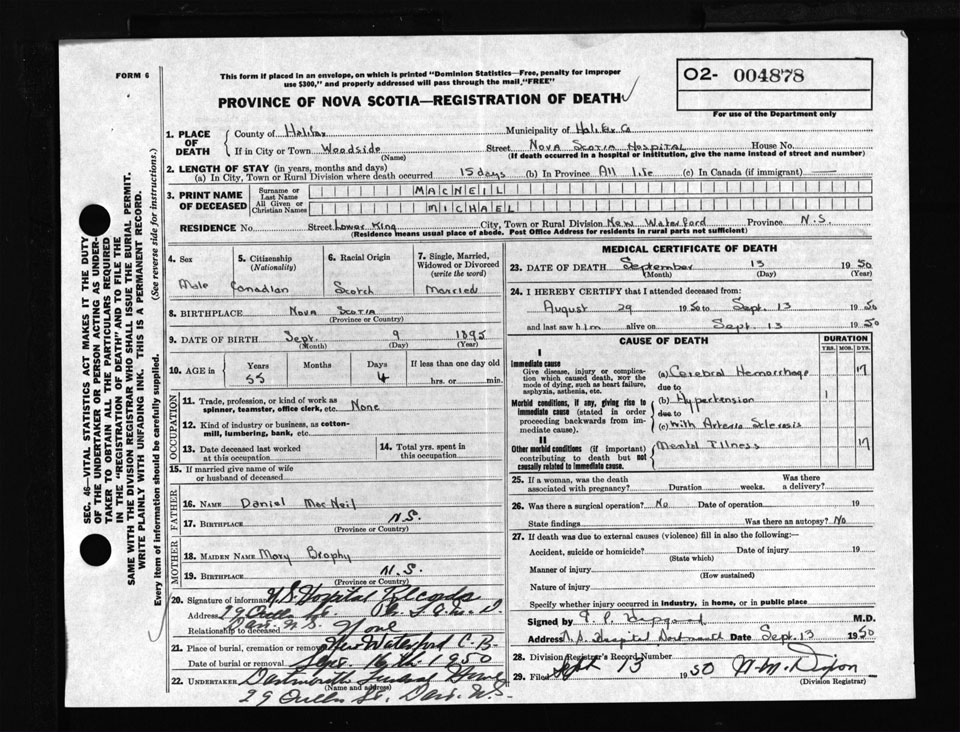 FORM 6
This form if placed in an envelope, on which is printed "Dominion Statistics—Free, penalty for improper
use $300," and properly addressed will pass through the mail "FREE"
PROVINCE OF NOVA SCOTIA—REGISTRATION OF DEATH
O2- 004878
For use of the Department only
SEC. 46—VITAL STATISTICS ACT MAKES IT THE DUTY
OF THE UNDERTAKER OR PERSON ACTING AS UNDER-
TAKER TO OBTAIN ALL THE PARTICULARS REQUIRED
IN THE "REGISTRATION OF DEATH" AND TO FILE THE
SAME WITH THE DIVISION REGISTRAR WHO SHALL ISSUE THE BURIAL PERMIT.
WRITE PLAINLY WITH UNFADING INK. THIS IS A PERMANENT RECORD.
Every item of information should be carefully supplied. (See reverse side for instructions.)
1. PLACE OF DEATH
County of Halifax Municipality of Halifax Co
If in City or Town Woodside Street Nova Scotia Hospital House No.
(Name) (If death occurred in a hospital or institution, give the name instead of street and number)
2. LENGTH OF STAY (in years, months and days)
(a) In City, Town or Rural Division where death occurred 15 days (b) In Province All life (c) In Canada (if immigrant)
3. PRINT NAME OF DECEASED
Surname or Last Name MACNEIL
All Given or Christian Names MICHAEL
RESIDENCE No. Street Lower King City, Town or Rural Division New Waterford Province N.S.
(Residence means usual place of abode. Post Office Address for residents in rural parts not sufficient)
4. Sex 5. Citizenship (Nationality) 6. Racial Origin 7. Single, Married, Widowed or Divorced (write the word)
Male Canadian Scotch Married
8. BIRTHPLACE Nova Scotia
(Province or Country)
9. DATE OF BIRTH Sept. 9 1895
(Month) (Day) (Year)
10. AGE in Years Months Days If less than one day old
55 4 hrs. or min.
OCCUPATION
11. Trade, profession, or kind of work as
spinner, teamster, office clerk, etc. None
12. Kind of industry or business, as cotton-
mill, lumbering, bank, etc.
13. Date deceased last worked
at this occupation
14. Total yrs. spent in
this occupation
15. If married give name of wife
or husband of deceased
FATHER
16. NAME Daniel MacNeil
17. BIRTHPLACE N.S.
(Province or Country)
MOTHER
18. MAIDEN NAME Mary Brophy
19. BIRTHPLACE N.S.
(Province or Country)
20. Signature of informant N.S. Hospital Records
Address 29 St. Dar. N.S.
Relationship to deceased None
21. Place of burial, cremation or removal New Waterford C.B.
Date of burial or removal Sept. 16th. 1950
22. UNDERTAKER Dartmouth Funeral Home
(Name and address)
29 St. Dar. N.S.
MEDICAL CERTIFICATE OF DEATH
23. DATE OF DEATH September 13 1950
(Month) (Day) (Year)
24. I HEREBY CERTIFY that I attended deceased from:
August 29 1950 to Sept. 13 1950
and last saw him alive on Sept. 13 1950
CAUSE OF DEATH DURATION
YRS. MOS. DYS.
I
Immediate cause
Give disease, injury or complica-
tion which caused death, not the
mode of dying, such as heart failure,
asphyxia, asthenia, etc.
(a) Cerebral Hemorrhage 17
due to
Morbid conditions, if any, giving rise to
immediate cause (stated in order
proceeding backwards from im-
mediate cause).
(b) Hypertension 1
due to
(c) With Arterio Sclerosis
II
Other morbid conditions (if important)
contributing to death but not
causally related to immediate cause.
Mental Illness 17
25. If a woman, was the death
associated with pregnancy? Duration weeks. Was there
a delivery?
26. Was there a surgical operation? No Date of operation 19
State findings Was there an autopsy? No
27. If death was due to external causes (violence) fill in also the following:—
Accident, suicide or homicide? Date of injury 19
(State which)
Manner of injury
(How sustained)
Nature of injury
Specify whether injury occurred in industry, in home, or in public place
Signed by M.D.
Address N.S. Hospital Dartmouth Date Sept. 13 1950
28. Division Registrar's Record Number
29. Filed Sept 13 1950 W.M. Dixon
(Division Registrar)